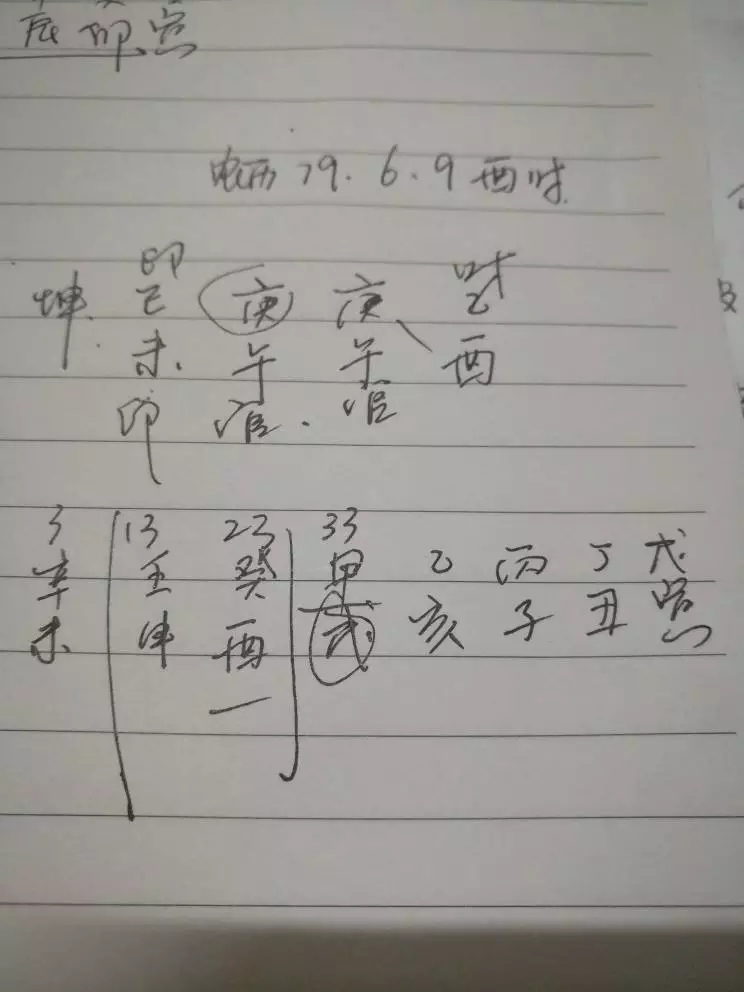 印宫
79.6.9 酉时
印 时
坤 己 庚 庚 乙
未 午 午 酉
印 官 官
3 13 23 33
辛 壬 癸 甲 乙 丙 丁 戊
未 申 酉 戌 亥 子 丑 寅